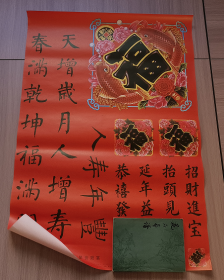 福
福
福
招財進宝
抬頭見
延年益
恭禧發
人壽年豐
天增歲月人增壽
春滿乾坤福滿